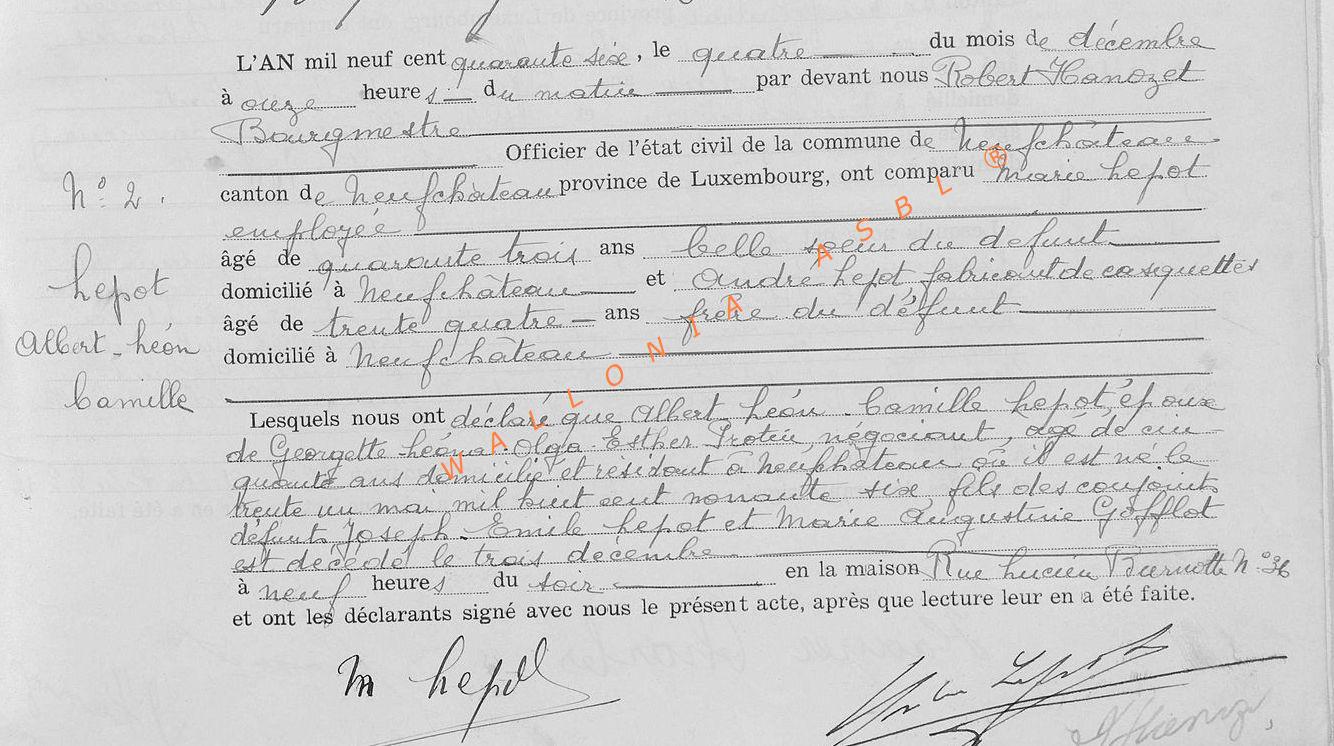 L'AN mil neuf cent quarante six, le quatre du mois de décembre
à onze heures du matin par devant nous Robert Hanozet
Bourgmestre
Officier de l'état civil de la commune de Neufchâteau
canton de Neufchâteau province de Luxembourg, ont comparu Marie Lepot
employée
âgé de quarante trois ans belle soeur du defunt
domicilié à Neufchâteau et André Lepot fabricant de casquettes
âgé de trente quatre ans frère du défunt
domicilié à Neufchâteau
N° 2.
Lepot
Albert-Léon
Camille
Lesquels nous ont déclaré que Albert Léon Camille Lepot, époux
de Georgette Léona Olga Esther Protin, négociant, agé de cin-
quante ans domicilié et résidant à Neufchâteau où il est né le
trente un mai mil huit cent nonante six fils des conjoints
défunts Joseph Emile Lepot et Marie Augustine Gofflot
est décédé le trois décembre
à neuf heures du soir en la maison Rue Lucien Burnotte N° 36
et ont les déclarants signé avec nous le présent acte, après que lecture leur en a été faite.
M Lepot
WALLONIA ASBL ®